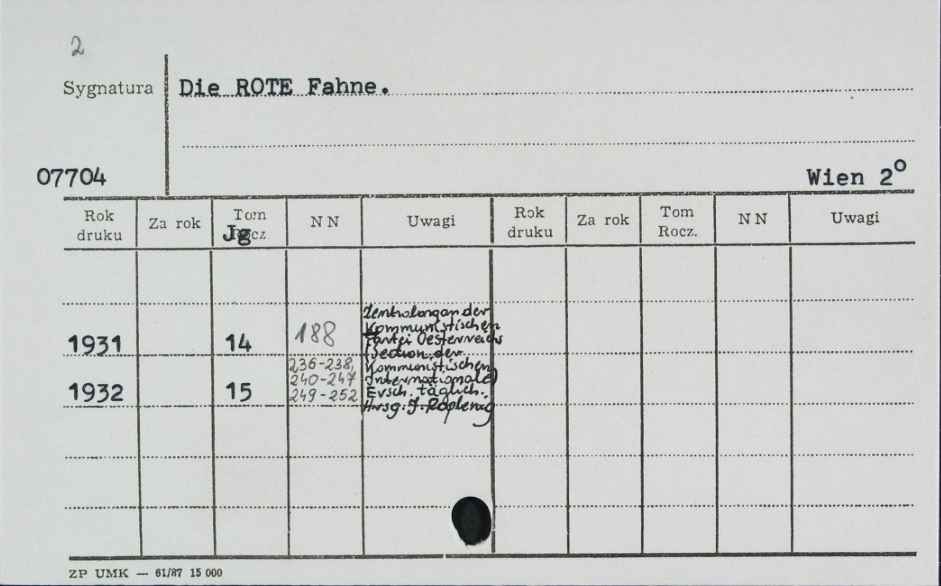 2
Sygnatura Die ROTE Fahne.
07704 Wien 2º
Rok druku Za rok Tom Jg N N Uwagi Rok druku Za rok Tom Rocz. N N Uwagi
Zentralorgan der
Kommunistischen
1931 14 188 Partei Oesterreichs
(Section der
236-238, Kommunistischen
240-247 Internationale)
1932 15 249-252 Ersch. täglich.
Hrsg. J. Koplenig
ZP UMK — 61/87 15 000